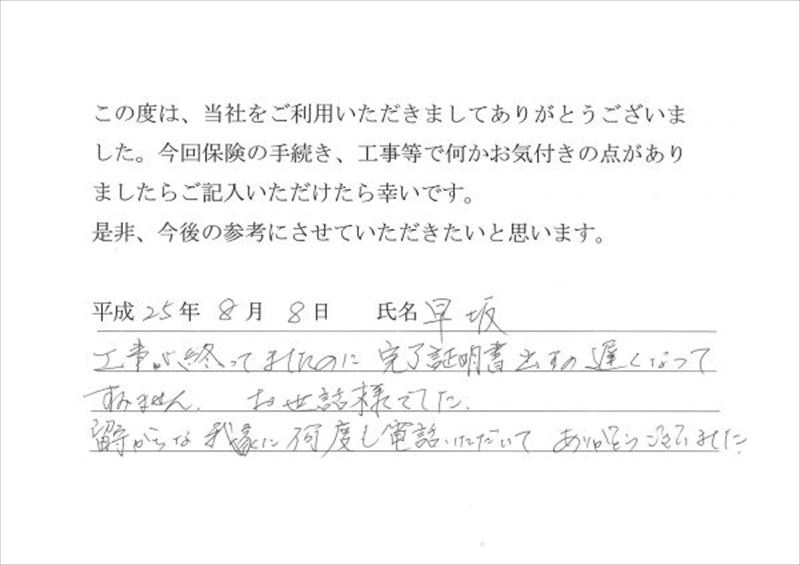 この度は、当社をご利用いただきましてありがとうございま
した。今回保険の手続き、工事等で何かお気付きの点があり
ましたらご記入いただけたら幸いです。
是非、今後の参考にさせていただきたいと思います。
平成25年 8月 8日 氏名 早坂
工事が終ってましたのに 完了証明書出すの遅くなって
すみません。 お世話様でした。
留守がちな我家に何度も電話いただいて ありがとうございました